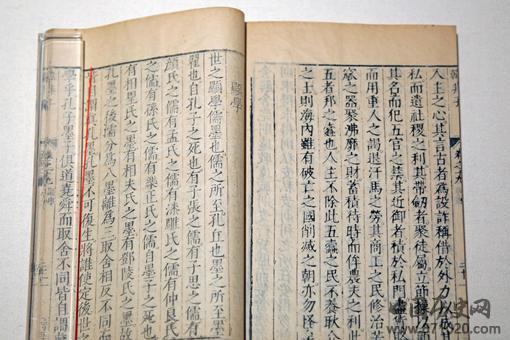 韓非子
人主之心其言古者為設詐稱借於外力以成其
私而遺社稷之利其帶劒者聚徒屬立節操以
其名而犯五官之禁其近御者積於私門盡貨
而用重人之謁退汗馬之勞其商工之民修治苦
窳之器聚沸靡之財蓄積待時而侔農夫之利此
五者邦之蠹也人主不除此五蠹之民不養耿介
之士則海內雖有破亡之國削滅之朝亦勿怪矣
顯學
世之顯學儒墨也儒之所至孔丘也墨之所至墨
翟也自孔子之死也有子張之儒有子思之儒有
顏氏之儒有孟氏之儒有漆雕氏之儒有仲良氏
之儒有孫氏之儒有樂正氏之儒自墨子之死也
有相里氏之墨有相夫氏之墨有鄧陵氏之墨故
孔墨之後儒分為八墨離為三取舍相反不同而
皆自謂真孔墨孔墨不可復生將誰使定後世之
學乎孔子墨子俱道堯舜而取舍不同皆自謂